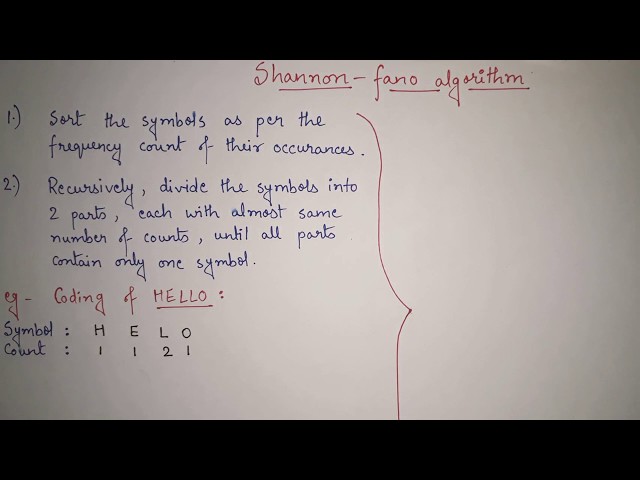 Shannon-fano algorithm
1.) Sort the symbols as per the
frequency count of their occurances.
2.) Recursively, divide the symbols into
2 parts, each with almost same
number of counts, until all parts
contain only one symbol.
eg - Coding of HELLO :
Symbol : H E L O
Count : 1 1 2 1